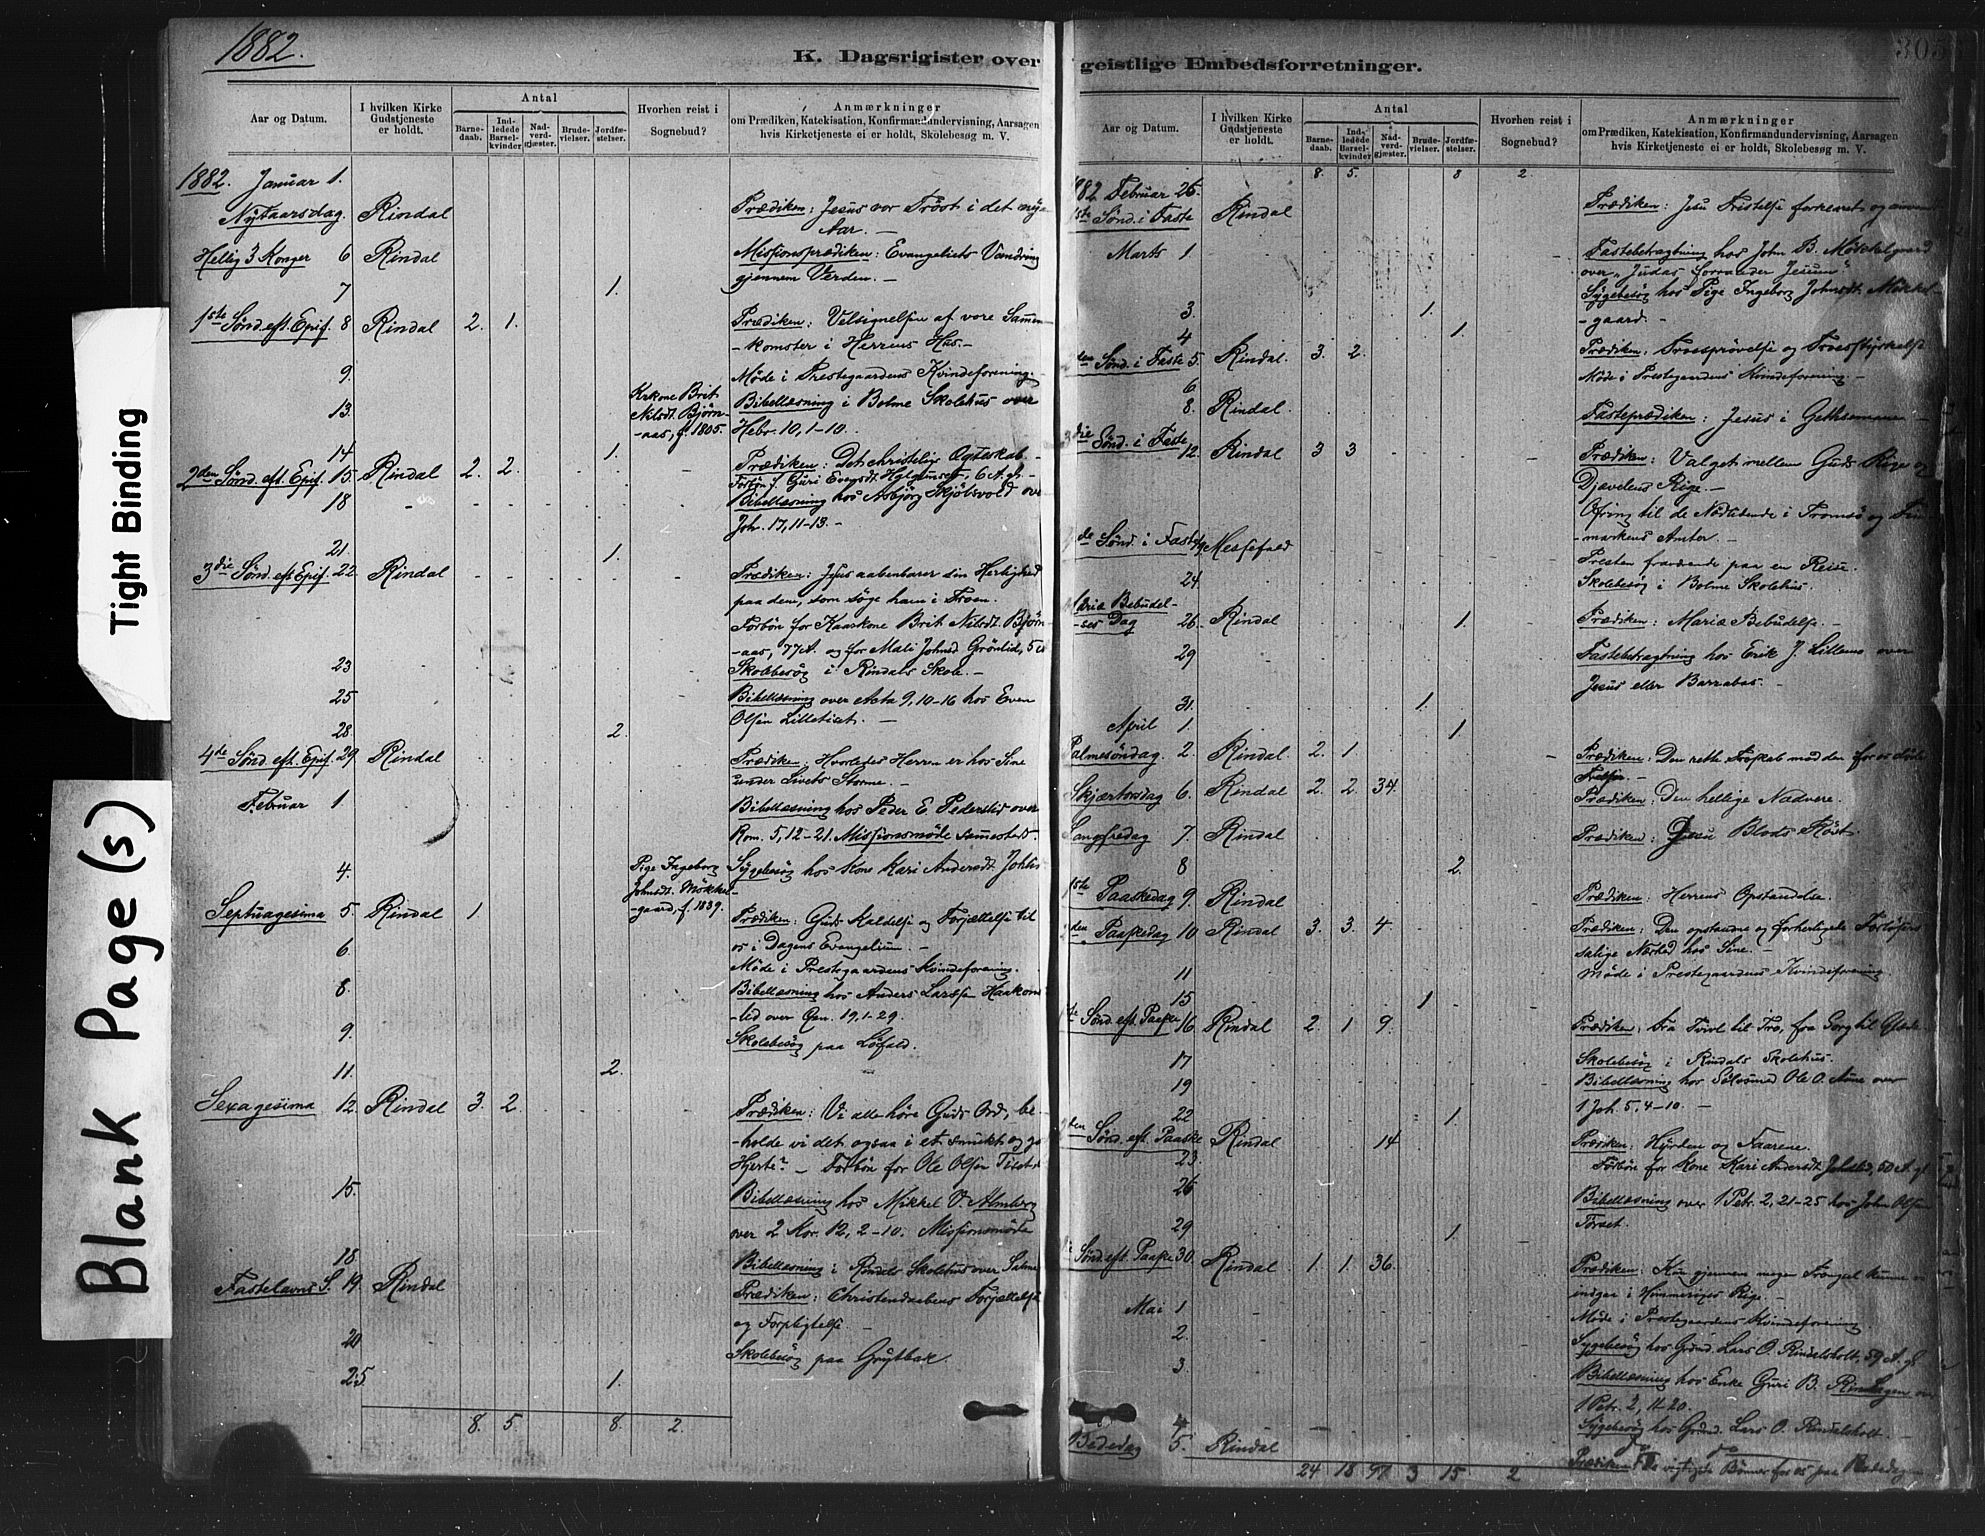 1882.
K. Dagsrigister over geistlige Embedsforretninger.
305
Tight Binding
Blank Page(s)
Aar og Datum.
I hvilken Kirke Gudstjeneste er holdt.
Antal
Barnedaab.
Indledede Barselkvinder
Nadverdgjæster.
Brudevielser.
Jordfæstelser.
Hvorhen reist i Sognebud?
Anmærkninger
om Prædiken, Katekisation, Konfirmandundervisning, Aarsagen
hvis Kirketjeneste ei er holdt, Skolebesøg m. V.
1882. Januar 1.
Nytaarsdag. Rindal Prædiken: Jesus vor Trøst i det nye
Aar. —
Hellig 3 Konger 6 Rindal Missionsprædiken: Evangeliets Vandring
gjennem Verden. —
7 1.
1ste Sønd. eft. Epif. 8 Rindal 2. 1. Prædiken: Velsignelsen af vore Sammen
-komster i Herrens Hus. —
9. Møde i Prestegaardens Kvindeforening. —
13. Kaarkone Brit Nilsdt. Bjørn-aas, f. 1805. Bibellæsning i Bolme Skolehus over
Hebr. 10, 1-10.
14 1.
2den Sønd. eft. Epif. 15. Rindal 2. 2. Prædiken: Det christelige Ægteskab. —
Forbøn f. Guri Evensdt. , 6 A. g. —
18 Bibellæsning hos Asbjørg Skjølsvold over
Joh. 17, 11-13. —
21. 1.
3die Sønd. eft. Epif. 22. Rindal Prædiken: Jesus aabenbarer sin Herlighed
paa dem, som søge ham i Troen.
Forbøn for Kaarkone Brit Nilsdt. Bjørn-
-aas, 77 A. og for Mali Johnsd. Grønlid, 5
23 Skolebesøg i Rindals Skole. —
25 Bibellæsning over Acta 9, 10-16 hos Even
Olsen Lilletiset. —
28. 2.
4de Sønd. eft. Epif. 29. Rindal Prædiken: Hvorledes Herren er hos Sine
under Livets Storme. —
Februar 1 Bibellæsning hos Peder E. Pederslid over
Rom. 5, 12-21. Missionsmøde sammesteds
4. Pige Ingeborg Johnsdt. Møkkel-gaard, f. 1839. Sygebesøg hos Kone Kari Andersdt. Johns
Septuagesima 5. Rindal 1 Prædiken: Guds Kaldelse og Forjættelse til
os i Dagens Evangelium. —
6. Møde i Prestegaardens Kvindeforening.
8. Bibellæsning hos Anders Larssen Haakons
-lid over Gen. 19, 1-29.
9. Skolebesøg paa Løfald.
11. 2.
Sexagesima 12. Rindal 3. 2. Prædiken: Vi alle høre Guds Ord, be-
-holde vi det ogsaa i et smukt og g
Hjerte? — Forbøn for Ole Olsen Tiset
15. Bibellæsning hos Mikkel O. Almberg
over 2 Kor. 12, 2-10. Missionsmøde
18 Bibellæsning i Rindals Skolehus over Salme
Fastelavns S. 19. Rindal Prædiken: Christendaabens Forjættelse
og Forpligtelse. —
20 Skolebesøg paa Grytbak.
25. 1.
8. 5. 8. 2.
Aar og Datum.
I hvilken Kirke Gudstjeneste er holdt.
Antal
Barnedaab.
Indledede Barselkvinder
Nadverdgjæster.
Brudevielser.
Jordfæstelser.
Hvorhen reist i Sognebud?
Anmærkninger
om Prædiken, Katekisation, Konfirmandundervisning, Aarsagen
hvis Kirketjeneste ei er holdt, Skolebesøg m. V.
8. 5. 8 2.
1882 Februar 26.
1ste Sønd. i Faste Rindal Prædiken: Jesu Fristelse forklaret og anvendt
Marts 1 Fastebetragtning hos John B. Møkkelgaard
over „Judas forraader Jesum".
Sygebesøg hos Pige Ingeborg Johnsdt. Møkkel-
-gaard. —
3. 1.
4 1
den Sønd. i Faste 5. Rindal. 3. 2. Prædiken: Troesprøvelse og Troesstyrkelse
6. Møde i Prestegaardens Kvindeforening. —
8. Rindal. Fasteprædiken: Jesus i Gethsemane
3die Sønd. i Faste 12. Rindal 3 3 Prædiken: Valget mellem Guds Rige og
Djævelens Rige. —
Ofring til de Nødlidende i Tromsø og Fin
-markens Amter. —
de Sønd. i Faste 19 Messefald Presten fraværende paa en Reise.
24. Skolebesøg i Bolme Skolehus.
Mariæ Bebudel-
-ses Dag 26. Rindal 1. Prædiken: Mariæ Bebudelse. —
29 Fastebetragtning hos Erik J. Lillemo over
Jesus eller Barrabas. —
31. 1.
April 1. 1
Palmesøndag 2. Rindal. 2. 1 Prædiken: Den rette Troskab mod den for os døde
Frelser. —
Skjærtorsdag 6. Rindal 2. 2. 34. Prædiken: Den hellige Nadvere.
Langfredag 7. Rindal Prædiken: Jesu Blods Røst.
8 2.
1ste Paaskedag 9. Rindal Prædiken: Herrens Opstandelse.
den Paaskedag 10 Rindal 3. 3. 4. Prædiken: Den opstandne og forherligede Forløsers
salige Nærhed hos Sine. —
11 Møde i Prestegaardens Kvindeforening.
15 1
Sønd. eft. Paaske 16. Rindal 2. 1 9. Prædiken: Fra Tvivl til Tro, fra Sorg til Glæde
17 Skolebesøg i Rindals Skolehus.
19 Bibellæsning hos Selvsmed Ole O. Aune over
1 Joh. 5, 4-10. —
22 1.
den Sønd. eft. Paaske 23. Rindal 14 Prædiken: Hyrden og Faarene.
Forbøn for Kone Kari Andersdt. Johnslid, 50 A. gl.
26 Bibellæsning over 1 Petr. 2, 21-25 hos John Olsen
Torset.
29 1.
Sønd. eft. Paaske 30 Rindal 1 1 36. Prædiken: Kun gjennem megen Trængsel kunne vi
indgaa i Himmeriges Rige. —
Mai 1 Møde i Prestegaardens Kvindeforening
2. Sygebesøg hos Grdmd. Lars O. Rindalsholt, 59 A. gl.
3. Bibellæsning hos Enke Guri B. over
1 Petr. 2, 11-20.
4 Sygebesøg hos Grdmd. Lars O. Rindalsholt. —
Bededag 5. Rindal Prædiken: De vigtigste Bønner for os paa Bededagen
24 18 97 3 15 2